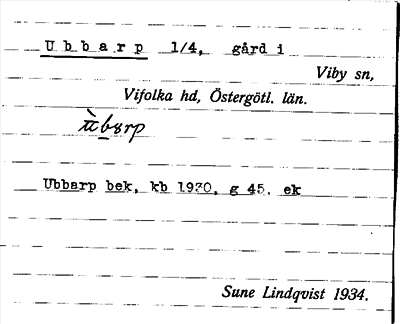 Ubbarp 1/4, gård i
Viby sn,
Vifolka hd, Östergötl. län.
Ubbarp bek, kb 1930, g 45. ek
Sune Lindqvist 1934.